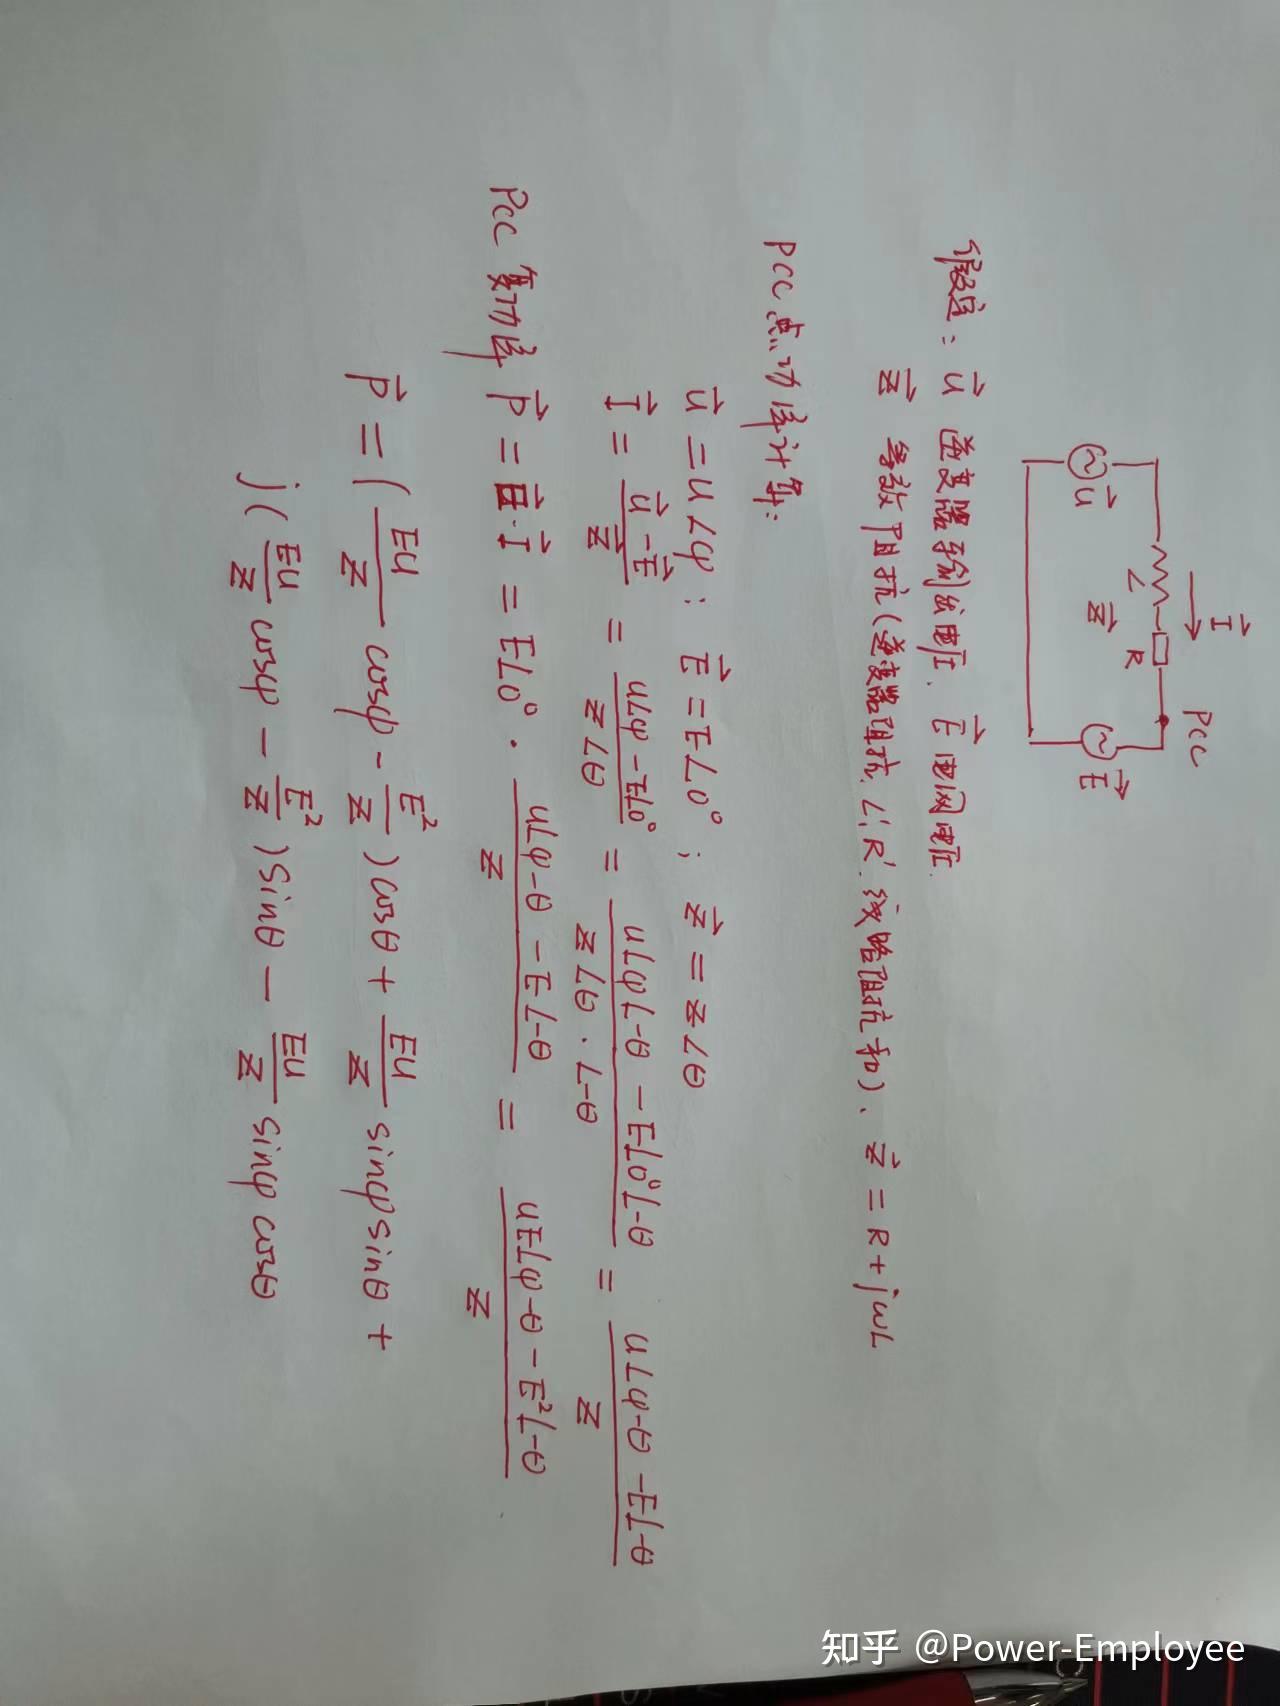 I⃗
PCC
L R
Z⃗
U⃗
E⃗
假定: U⃗ 逆变器输出电压. E⃗ 电网电压.
Z⃗ 等效阻抗(逆变器阻抗, L', R' 线路阻抗和). Z⃗ = R + jωL
PCC点功率计算:
U⃗ = U∠φ; E⃗ = E∠0°; Z⃗ = Z∠θ
I⃗ = (U⃗ - E⃗)/Z⃗ = (U∠φ - E∠0°)/(Z∠θ) = (U∠φ∠-θ - E∠0°∠-θ)/(Z∠θ·∠-θ) = (U∠φ-θ - E∠-θ)/Z
PCC 复功率 P⃗ = E⃗·I⃗ = E∠0° · (U∠φ-θ - E∠-θ)/Z = (UE∠φ-θ - E²∠-θ)/Z
P⃗ = (EU/Z cosφ - E²/Z)cosθ + EU/Z sinφ sinθ +
j(EU/Z cosφ - E²/Z)sinθ - EU/Z sinφ cosθ
知乎 @Power-Employee